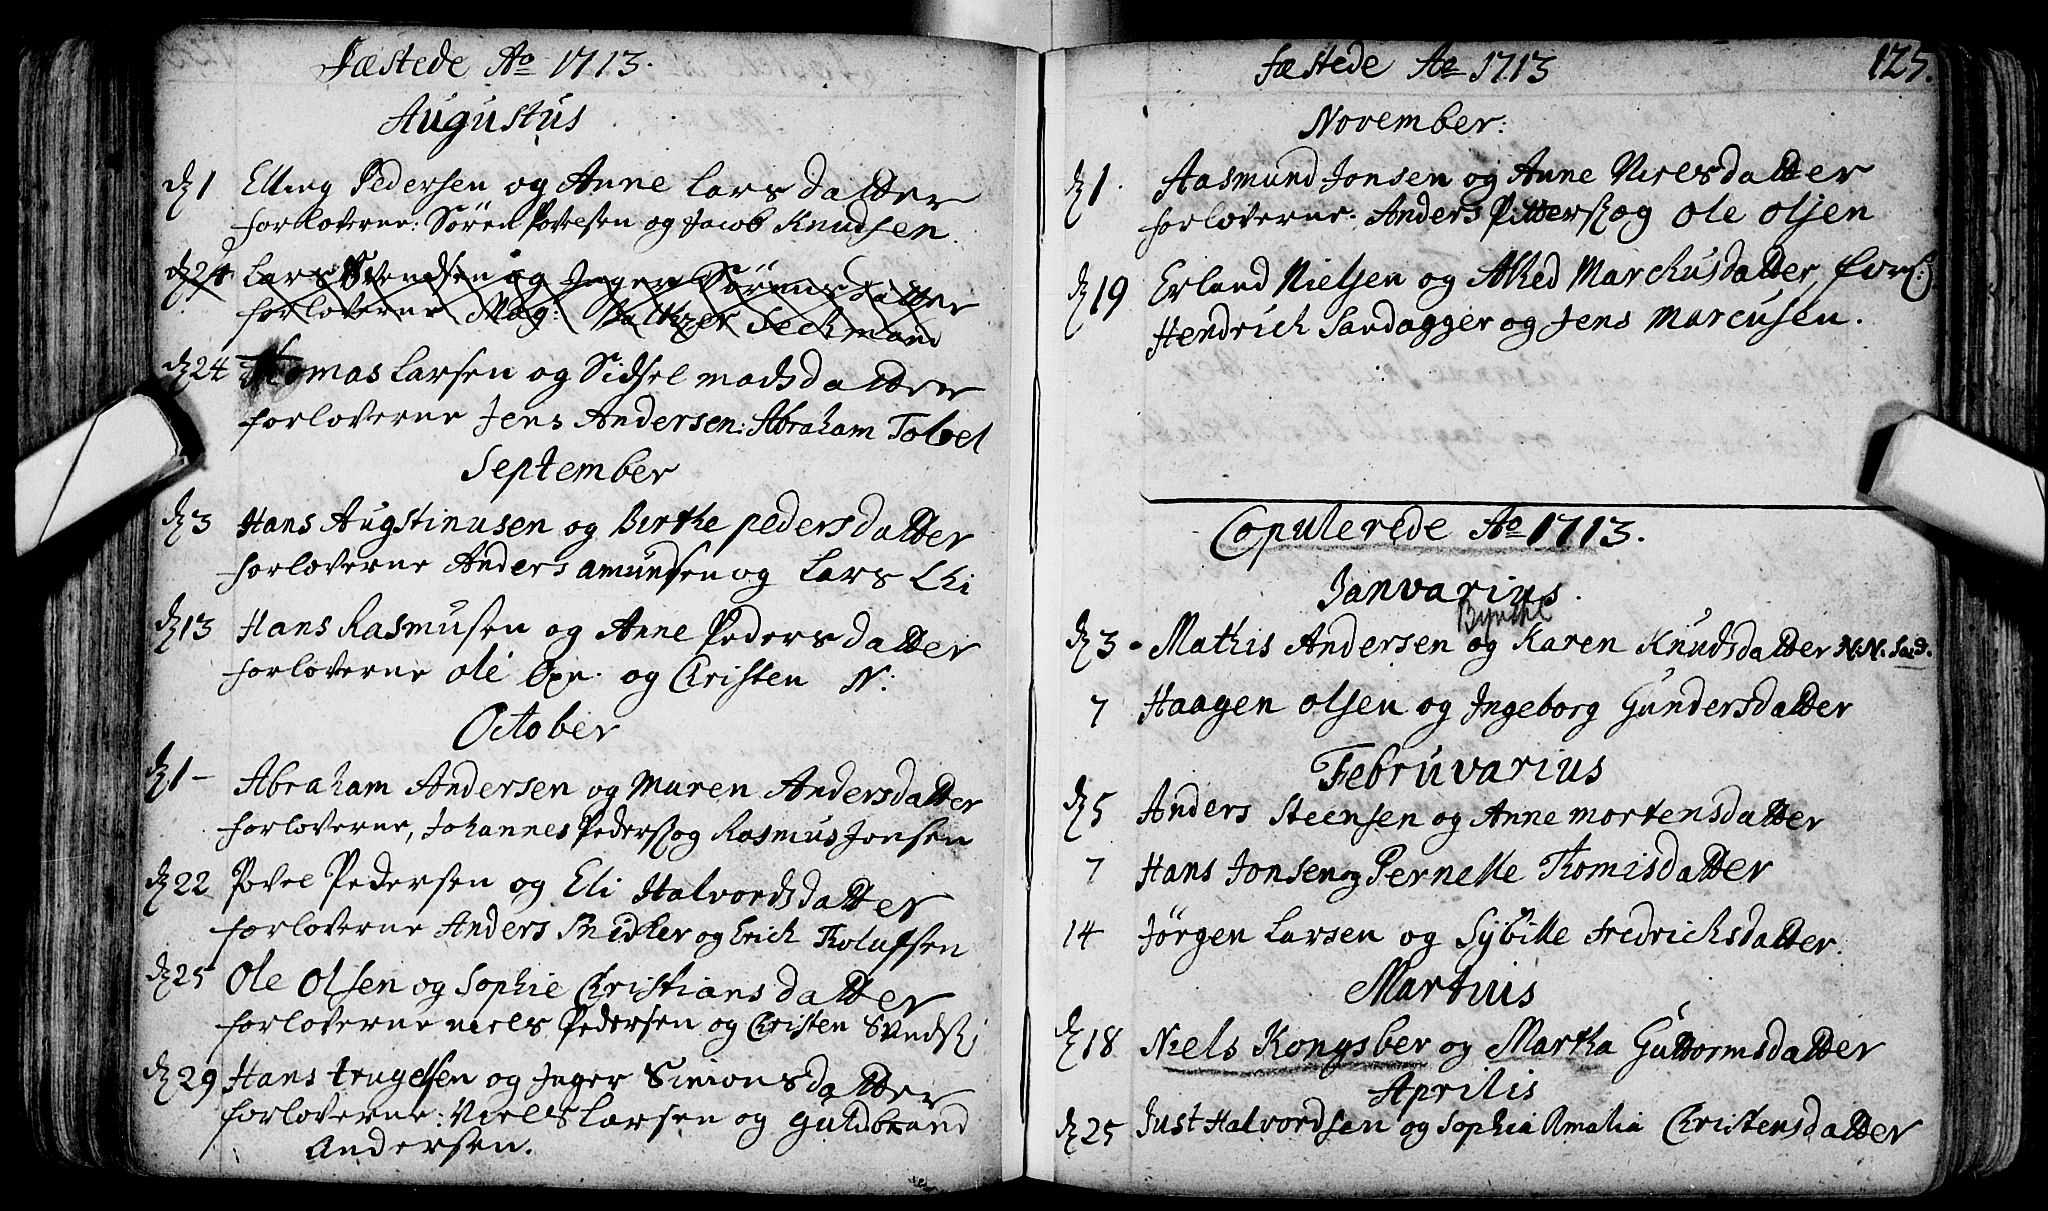 Fæstede Ao 1713.
Augustus
dz 1 Elling Pedersen og Anne Larsdatter
forloverne: Søren Povelsen og Jacob Knudsen.
dz 24 Lars Svendsen og Inger Sørensdatter
forloverne Mag: Baltzer Sechmand
dz 24 Thomas Larsen og Sidsel madsdatter
forloverne Jens Andersen: Abraham
September
dz 3 Hans Augstinusen og Birthe pedersdatter
forloverne Anders amundsen og Lars Chi
dz 13 Hans Rasmusen og Anne Pedersdatter
forloverne ole og Christen N:
October
dz 1 - Abraham Andersen og Maren Andersdatter
forloverne, Johannes Peders: og Rasmus Jonsen
dz 22 Povel Pedersen og Eli Halvordsdatter
forloverne Anders og Erich Tholufsen
dz 25 Ole Olsen og Sophie Christiansdatter
forloverne niels Pedersen og Christen Svends:
dz 29 Hans trugelsen og Inger Simonsdatter
forloverne: Niels Larsen og Guldbrand
Andersen.
Fæstede Ao 1713
125.
November:
dz 1. Aasmund Jonsen og Anne Nielsdatter
forloverne: Anders Pitters: og Ole Olsen
dz 19 Erland Nielsen og Alhed Marchusdatter, forl:
Hendrich Sandagger og Jens Marcusen.
Copulerede Ao 1713.
Janvarius.
Byncke
dz 3 - Mathis Andersen og Karen Knudsdatter N.N. Sad.
7 Haagen Olsen og Ingeborg Gundersdatter
Februvarius
dz 5 Anders Steensen og Anne mortensdatter
7 Hans Jonsen og Pernelle Thomisdatter
14 Jörgen Larsen og Sybille Fredrichsdatter.
Martius
dz 18 Niels Kongsber og Martha Guttormsdatter
Aprilis
dz 25 Just Halvordsen og Sophia Amalia Christensdatter